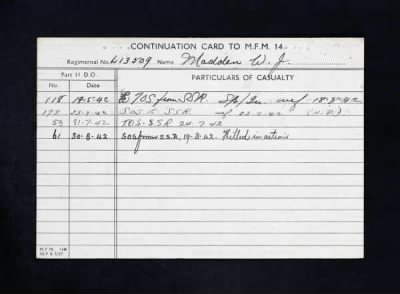 CONTINUATION CARD TO M.F.M. 14
Regimental No. L13509 Name Madden W. J.
Part II D.O. PARTICULARS OF CASUALTY
No. Date
118 19.5.42 TOS from SSR. wef 18.5.42
23.7.42 SOS to SSR wef 23.7.42
53 31.7.42 TOS-SSR 24.7.42
61 30.8.42 SOS from S.S.R. 19.8.42. Killed in action